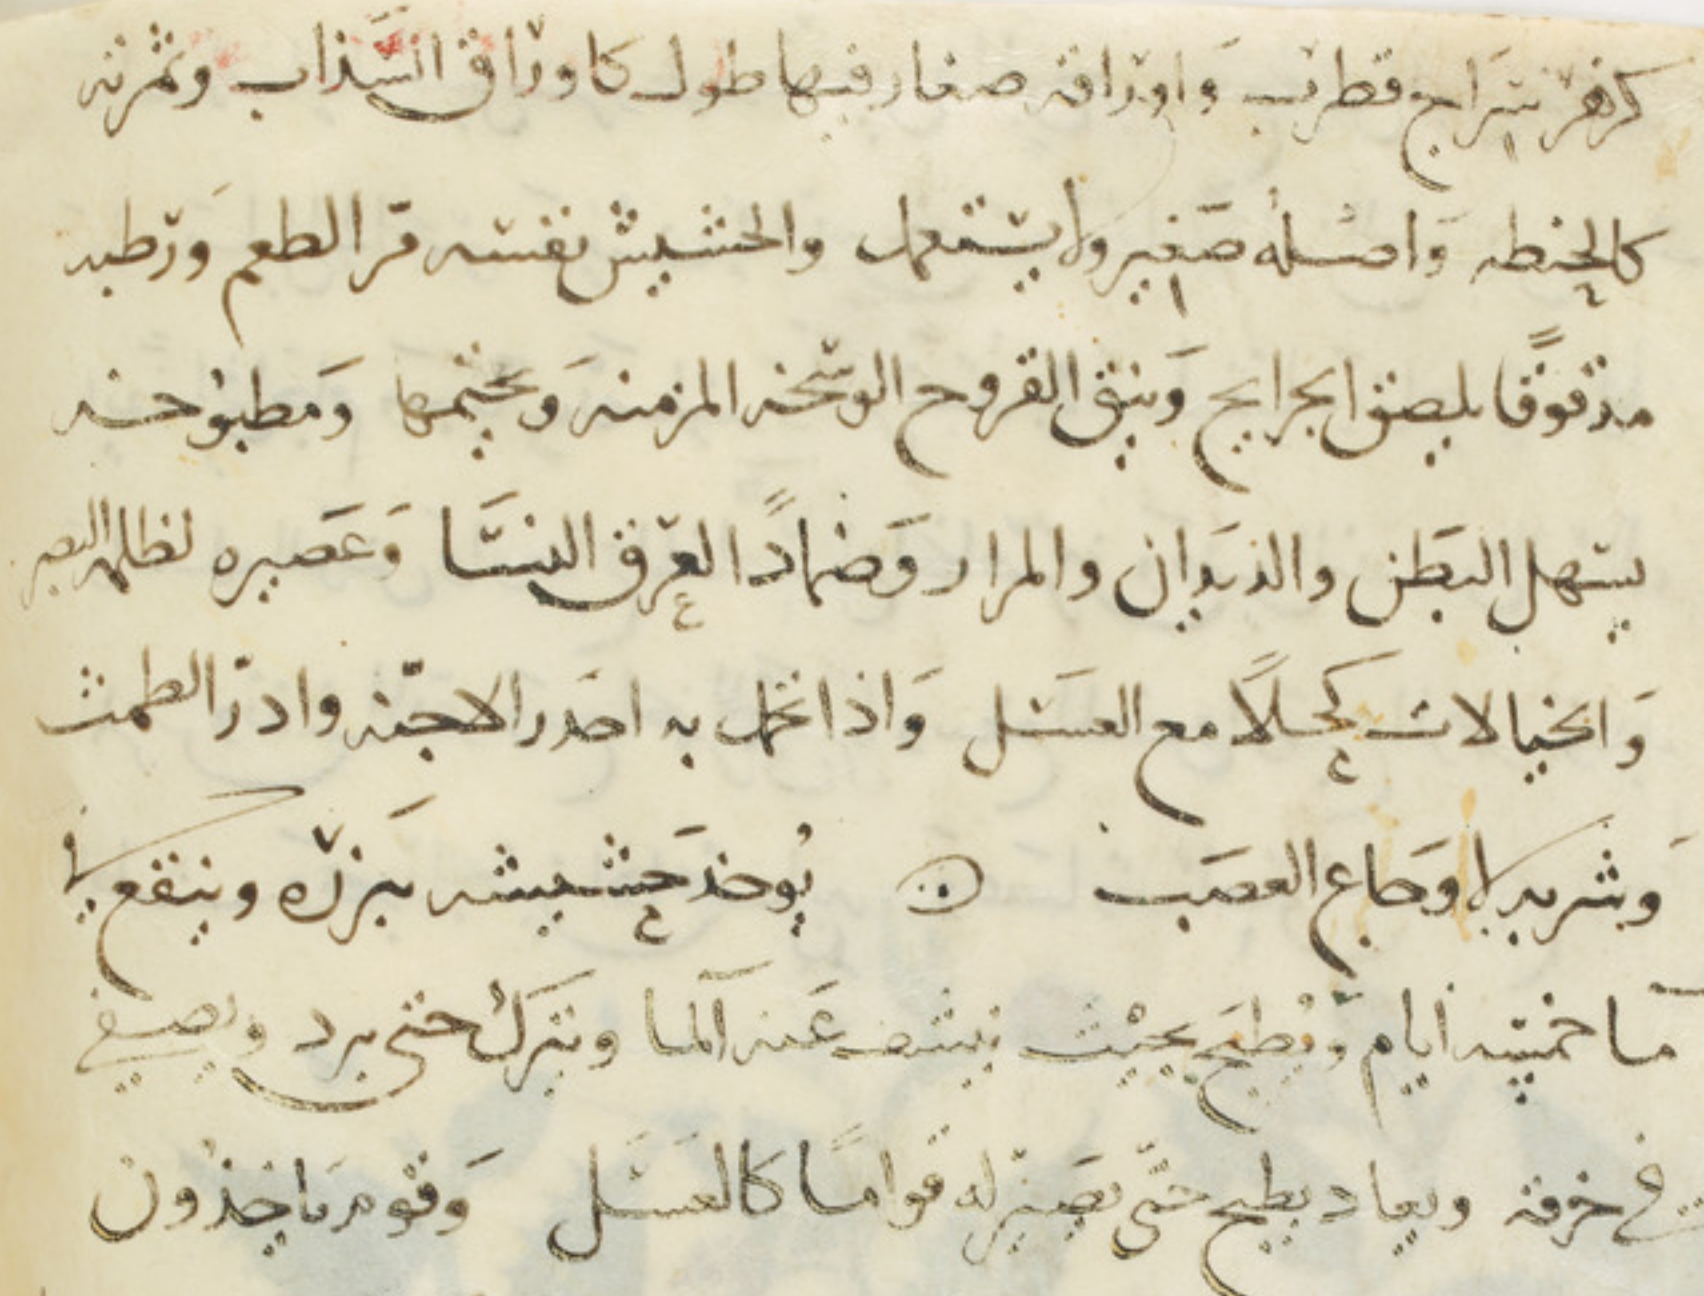 كزهر سراج قطرب وَاوراقه صغار فيها طول كاوراق السَّذاب وثمرته
كالحنطه وَاصله صَغير ولا يستعمل والحشيش نفسه مرّ الطعم وَرَطبه
مدقوقًا يلصق الجرايح وَينقي القروح الوسخه المزمنه وَيختمها وَمَطبوخه
يسهل البَطن والديدان والمرار وَضمادًا لعرق النسَا وَعَصيره لظلمه البصر
وَالخيالات كحلًا مع العسَل وَاذا تحمل به احَدر الاجنّه وادرّ الطمث
وَشربه لاوجاع العصَب يُوخذ حَشيشه ببزره وينقع في
مــا خمسه ايام وَيُطبخ بحيْث ينشف عَنه المآ ويترك حتى برد ويصفي
في خرقه ويعاد يطبخ حتّى يصَير له قوامًا كالعسَل وَقوم ياخذُون